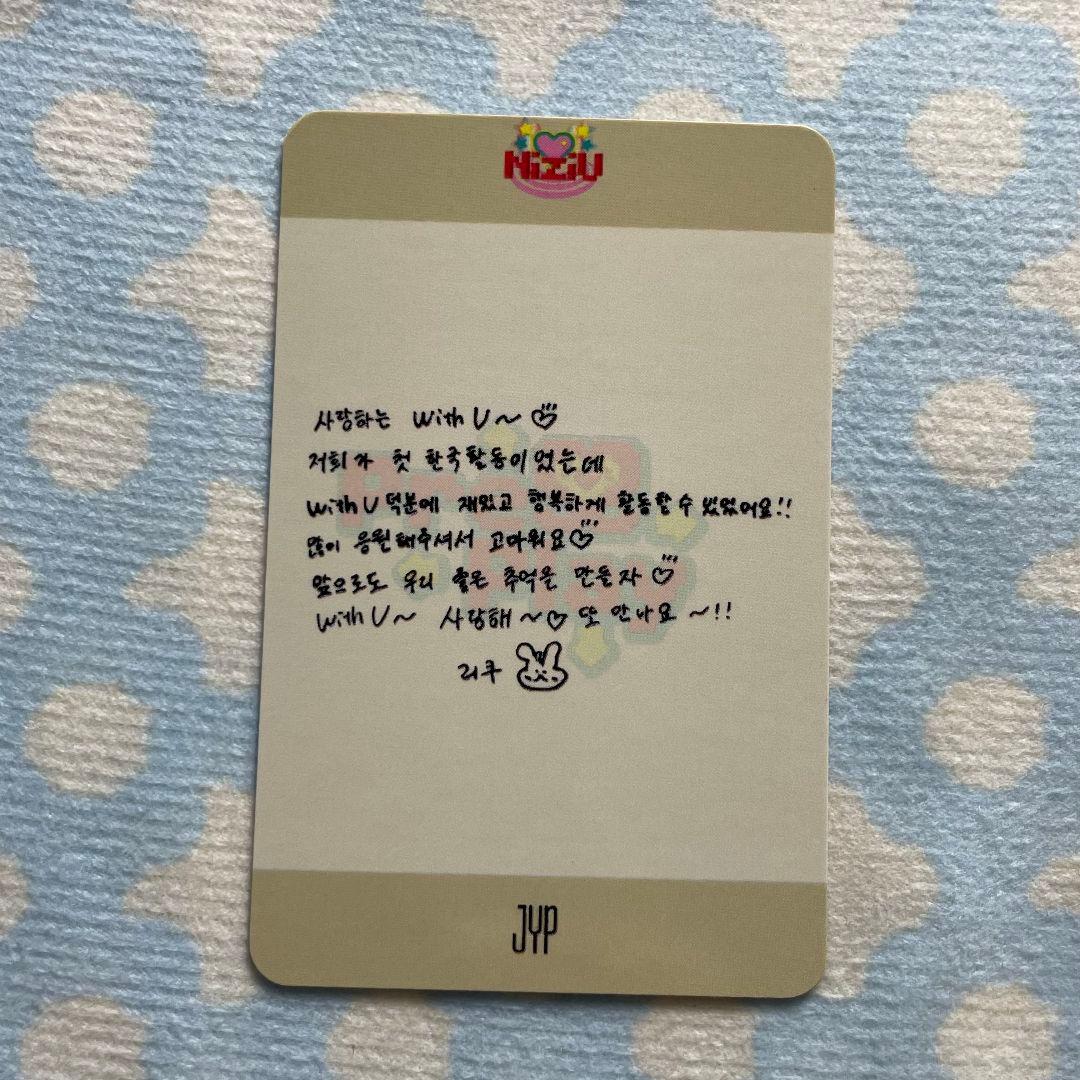 NiziU
사랑하는 With U~♡
저희가 첫 한국활동이었는데
With U 덕분에 재밌고 행복하게 활동할 수 있었어요!!
많이 응원해주셔서 고마워요♡
앞으로도 우리 좋은 추억을 만들자 ♡
With U~ 사랑해~♡ 또 만나요 ~!!
리쿠
Press Play
JYP